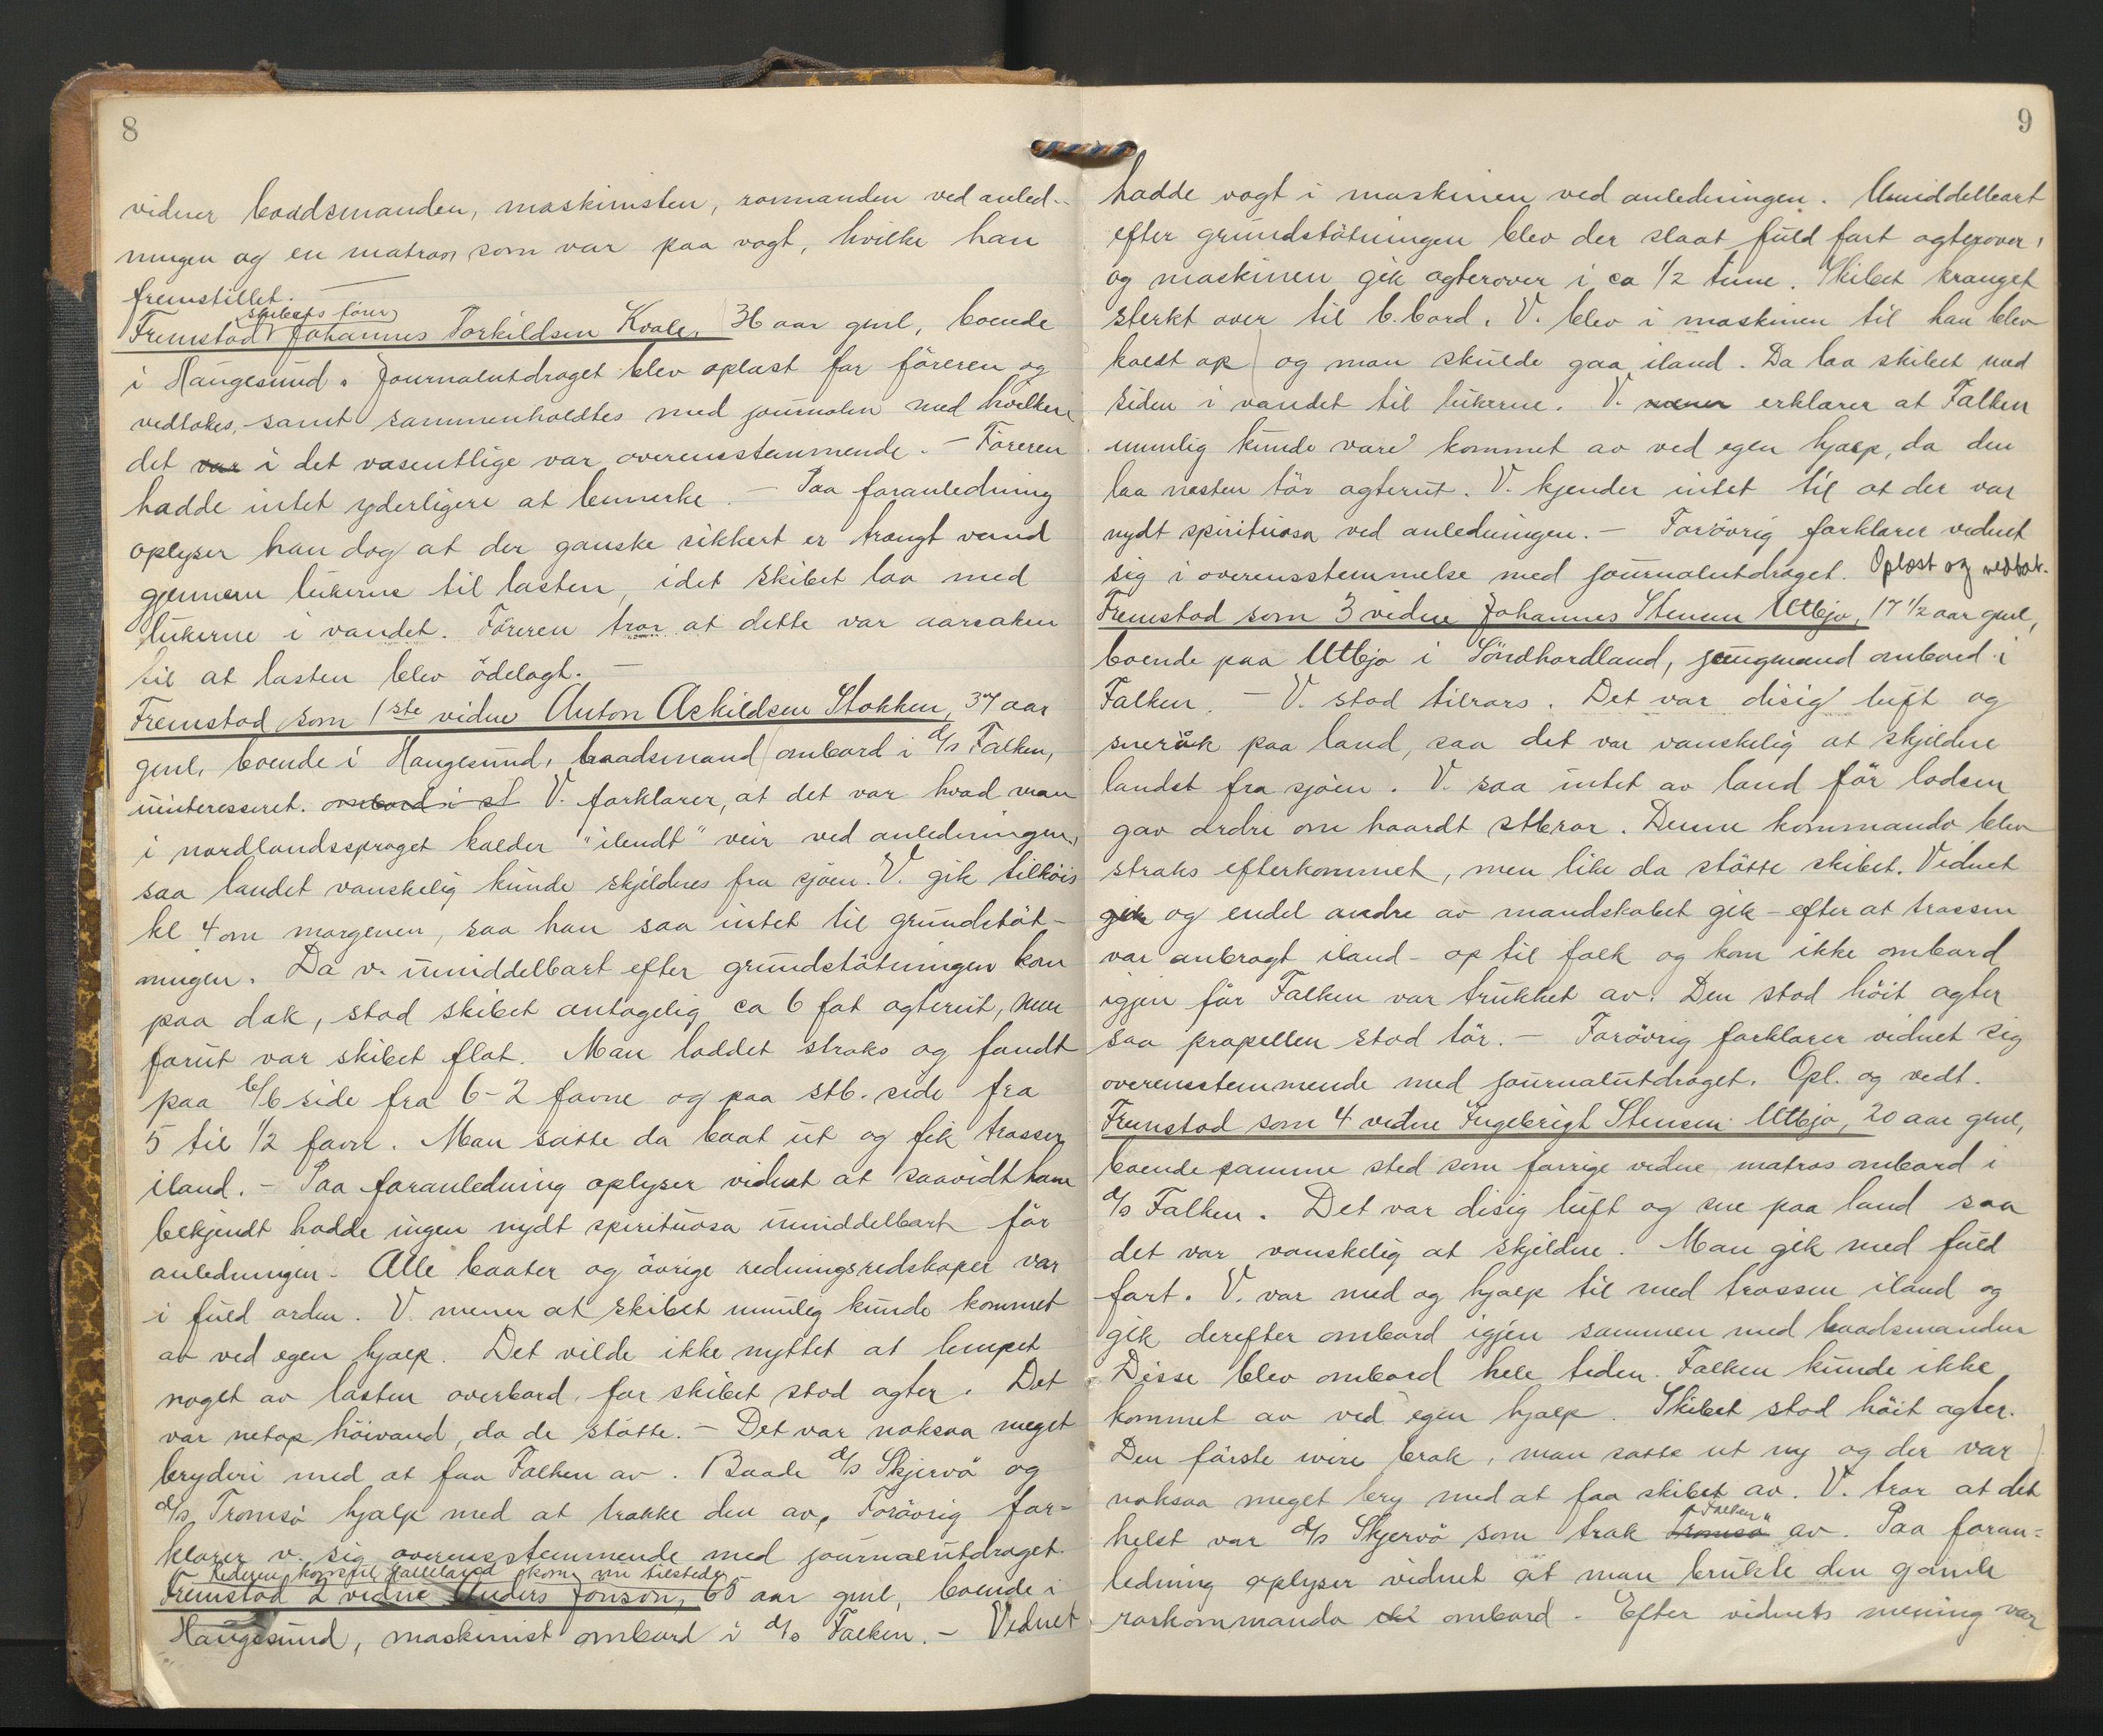 8
vidner baadsmanden, maskinisten, rormanden ved anled-
ningen og en matros som var paa vagt, hvilke han
fremstillet. —
skibets fører
Fremstod Johannes Torkildsen Kvale, 36 aar gml, boende
i Haugesund. Journalutdraget blev oplæst for föreren og
vedtokes, samt sammenholdtes med journalen med hvilken
det var i det væsentlige var overensstemmende. – Föreren
hadde intet yderligere at bemerke. – Paa foranledning
oplyser han dog at der ganske sikkert er trængt vand
gjennem lukerne til lasten, idet skibet laa med
lukerne i vandet. Föreren tror at dette var aarsaken
til at lasten blev ödelagt. –
Fremstod som 1ste vidne Anton Askildsen Stokken, 37 aar
gml, boende i Haugesund, baadsmand ombord i d/s Falken,
uinteresseret. ombord i st V. forklarer, at det var hvad man
i nordlandssproget kalder "ilendt" veir ved anledningen,
saa landet vanskelig kunde skjeldnes fra sjöen. V. gik tilköis
kl 4 om morgenen, saa han saa intet til grundstöt-
ningen. Da v. umiddelbart efter grundstötningen kom
paa dæk, stod skibet antagelig ca 6 fot agterut, men
forut var skibet flot. Man loddet straks og fandt
paa b/b side fra 6-2 favne og paa stb. side fra
5 til 1/2 favn. Man satte da baat ut og fik trosser
iland. – Paa foranledning oplyser vidnet at saavidt ham
bekjendt hadde ingen nydt spirituosa umiddelbart för
anledningen. Alle baater og övrige redningsredskaper var
i fuld orden. V. mener at skibet umulig kunde kommet
av ved egen hjælp. Det vilde ikke nyttet at lempet
noget av lasten overbord, for skibet stod agter. Det
var netop höivand, da de stötte. – Det var noksaa meget
bryderi med at faa Falken av. Baade d/s Skjervö og
d/s Tromsö hjalp med at trække den av, Forövrig for-
klarer v. sig overensstemmende med journalutdraget.
Rederen, konsul Halleland kom nu tilstede
Fremstod 2 vidne Anders Jonson, 65 aar gml, boende i
Haugesund, maskinist ombord i d/s Falken. – Vidnet
9
hadde vagt i maskinen ved anledningen. Umiddelbart
efter grundstötningen blev der slaat fuld fart agterover,
og maskinen gik agterover i ca 1/2 time. Skibet krænget
sterkt over til b.bord. V. blev i maskinen til han blev
kaldt op og man skulde gaa iland. Da laa skibet med
siden i vandet til lukerne. V. mener erklærer at Falken
umulig kunde være kommet av ved egen hjælp, da den
laa næsten tör agterut. V. kjender intet til at der var
nydt spirituosa ved anledningen. – Forövrig forklarer vidnet
sig i overensstemmelse med journalutdraget. Oplæst og vedtat.
Fremstod som 3 vidne Johannes Stensen Utbjo, 17 1/2 aar gml,
boende paa Utbjo i Söndhordland, jungmand ombord i
Falken. – V. stod tilrors. Det var disig luft og
snerök paa land, saa det var vanskelig at skjeldne
landet fra sjöen. V. saa intet av land för lodsen
gav ordre om haardt stb.ror. Denne kommando blev
straks efterkommet, men like da stötte skibet. Vidnet
gik og endel andre av mandskabet gik – efter at trossen
var anbragt iland – op til folk og kom ikke ombord
igjen för Falken var trukket av. Den stod höit agter
saa propellen stod tör. – Forövrig forklarer vidnet sig
overensstemmende med journalutdraget. Opl. og vedt.
Fremstod som 4 vidne Ingebrigt Stensen Utbjo, 20 aar gml,
boende samme sted som forrige vidne, matros ombord i
d/s Falken. Det var disig luft og sne paa land saa
det var vanskelig at skjeldne. Man gik med fuld
fart. V. var med og hjalp til med trossen iland og
gik derefter ombord igjen sammen med baadsmanden
Disse blev ombord hele tiden. Falken kunde ikke
kommet av ved egen hjælp. Skibet stod höit agter.
Den förste wire brak, man satte ut ny og der var
noksaa meget bry med at faa skibet av. V. tror at det
"Falken"
helst var d/s Skjervö som trak Tromsö av. Paa foran=
ledning oplyser vidnet at man brukte den gamle
rorkommando ombord. Efter vidnets mening var